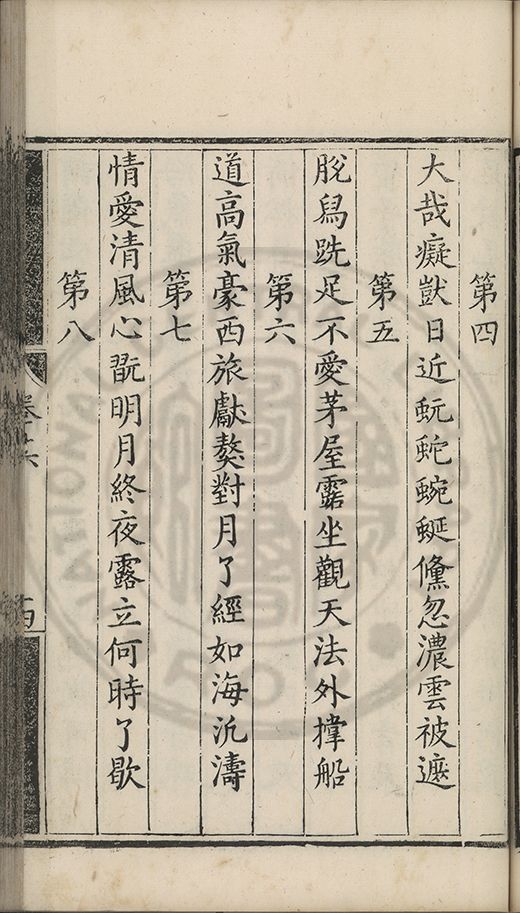 第四
大哉癡獃日近蚖蛇蜿蜒儵忽濃雲被遮
第五
脫舄跣足不愛茅屋露坐觀天法外撑船
第六
道高氣豪西旅獻獒對月了經如海沉濤
第七
情愛清風心翫明月終夜露立何時了歇
第八